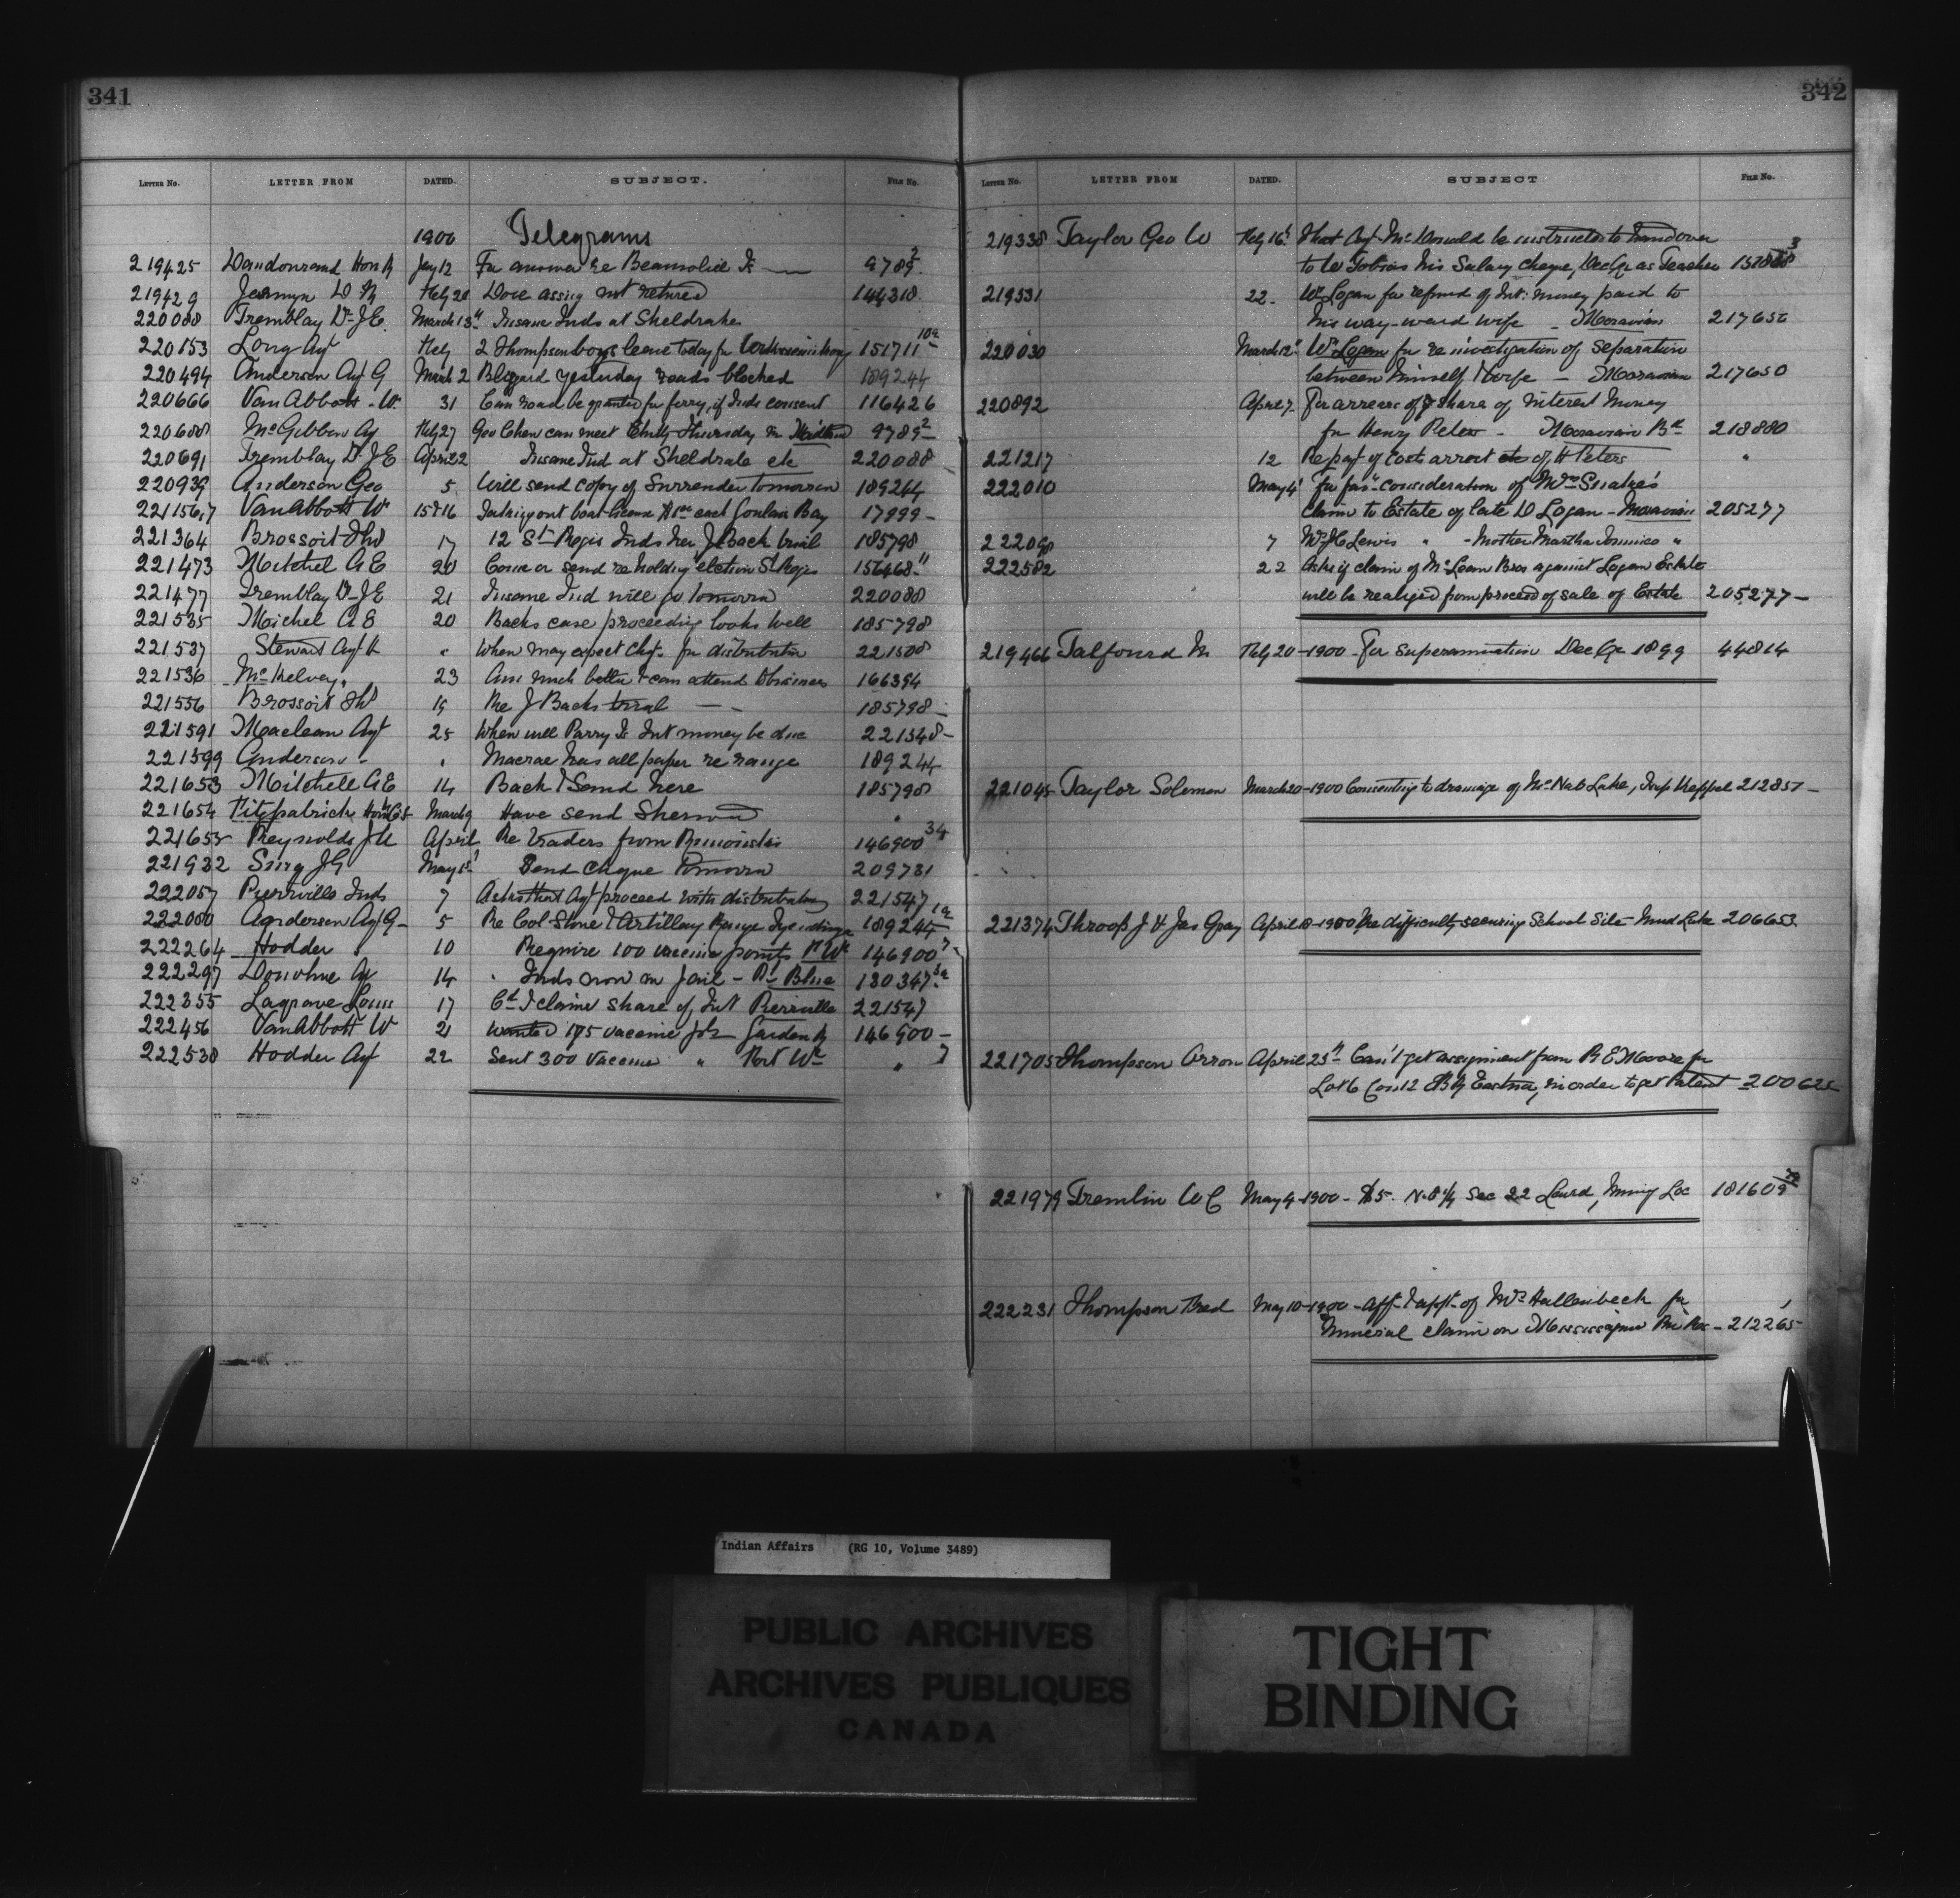 341
LETTER NO. LETTER FROM DATED. SUBJECT. FILE NO.
1900 Telegrams
219425 Dandourand Hon R Jany 12 For answer re Beausoliel Is 9789 2
219429 Jermyn D M Feby 20 Dove assig not retured 144318
220088 Tremblay Dr J E March 13th Insane Inds at Sheldrake
220153 Long Agt Feby 2 Thompson boys leave today for 151711 10a
220494 Anderson Agt G March 2 Blizard yesterday roads blocked 189244
220666 Van Abbott W. 31 Can road be granted for ferry, if Inds consent 116426
220688 McGibbon Ag Feby 27 Geo Chew can meet Thursday in Midland 9789 2
220691 Tremblay Dr J E April 22 Insane Ind at Sheldrale etc 220088
220939 Anderson Geo 5 Will send copy of Surrender tomorrow 189244
221156,7 VanAbbott W 15&16 boat license each Goulais Bay 17999 -
221364 Brossoit 17 12 St Regis Inds her J Back trial 185798
221473 Mitchel A E 20 Come or send re holding election St Regis 156468 11
221477 Tremblay Dr J E 21 Insane Ind will go tomorrw 220088
221535 Michel A E 20 Backs case proceeding looks well 185798
221537 Stewart Agt " When may expect chqs. for distributn 221508
221536 McKelvey, 23 Am much better & can attend to business 166394
221556 Brossoit 19 Re J Backs trial - - 185798 -
221591 Maclean Agt 25 When will Parry Is Int money be due 221348 -
221599 Anderson - " Macrae has all paper re range 189244
221653 Mitchelle A E 14 Back & Sand here 185798
221654 Fitzpatrick Hon Chs March 9 Have send Sherwd "
221655 Reynolds J U April Re traders from 146900 34
221932 Sing J G May 1st Send cheque tomorrw 209731
222057 Pierrville Inds 7 Asks that Agt proceed with distributn 221547
222080 Agnderson Agt G - 5 Re Cool Stone & Artillery Range 189244 1a
222264 Hodder 10 Require 100 vaccine points Pt Wm 146900 7
222297 Donohue Ag 14 Inds now in Jail - Rr Blue 130347 3a
222355 Lagrave Louis 17 Cd I claim share of Int Pierrville 221547
222456 VanAbbott W 21 Wanted 175 vaccine pts Garden R 146900 -
222538 Hodder Agt 22 Sent 300 Vaccine " Fort Wm " 7
342
LETTER NO. LETTER FROM DATED. SUBJECT FILE NO.
219338 Taylor Geo W Feby 16th That Agt McDonald be instructed to hand over
to W Tobias his Salary cheque, Dec Qr as Teacher 3
219531 22 - Wm Logan for refund of Int: money paid to
his way-ward wife - Moravian 217650
220030 March 12th Wm Logan for re investigation of separation
between himself & wife - Moravian 217650
220892 April 7 For arrears of share of interest money
for Henry Peters - Moravian Bd 218880
221217 12 Re payt of costs arrest etc of H Peters "
222010 May 4 For favr consideration of Mrs Snake's
claim to Estate of late D Logan - Moravian 205277
222098 7 Wm J C Lewis " - Mother Martha Dominico "
222582 22 Asks if claim of McLean Bros against Logan Estate
will be realized from proceed of sale of Estate 205277 -
219466 Talfourd M Feby 20 - 1900 - For Superannuation Dec Qr 1899 44814
221045 Taylor Solomon March 20 - 1900 Consenting to drainage of McNab Lake, Twp Keppel 212857 -
221374 Throop J & Jas Gray April 18 - 1900 Re difficulty securing School Site Mud Lake 206653
221705 Thompson Arron April 25th Can't get assignment from R E Moore for
Lot 6 Con 12 Eastnor, in order to get Patent 200625
221979 Tremlin W C May 4 - 1900 - $5. N.E 1/4 Sec 22 Laird, Mining Loc 181609
222231 Thompson Fred May 10 - 1900 - aff & appt of Mrs Hallenbeck for
mineral claim on Mississagua Riv Res - 212265
Indian Affairs (RG 10, Volume 3489)
PUBLIC ARCHIVES
ARCHIVES PUBLIQUES
CANADA
TIGHT
BINDING